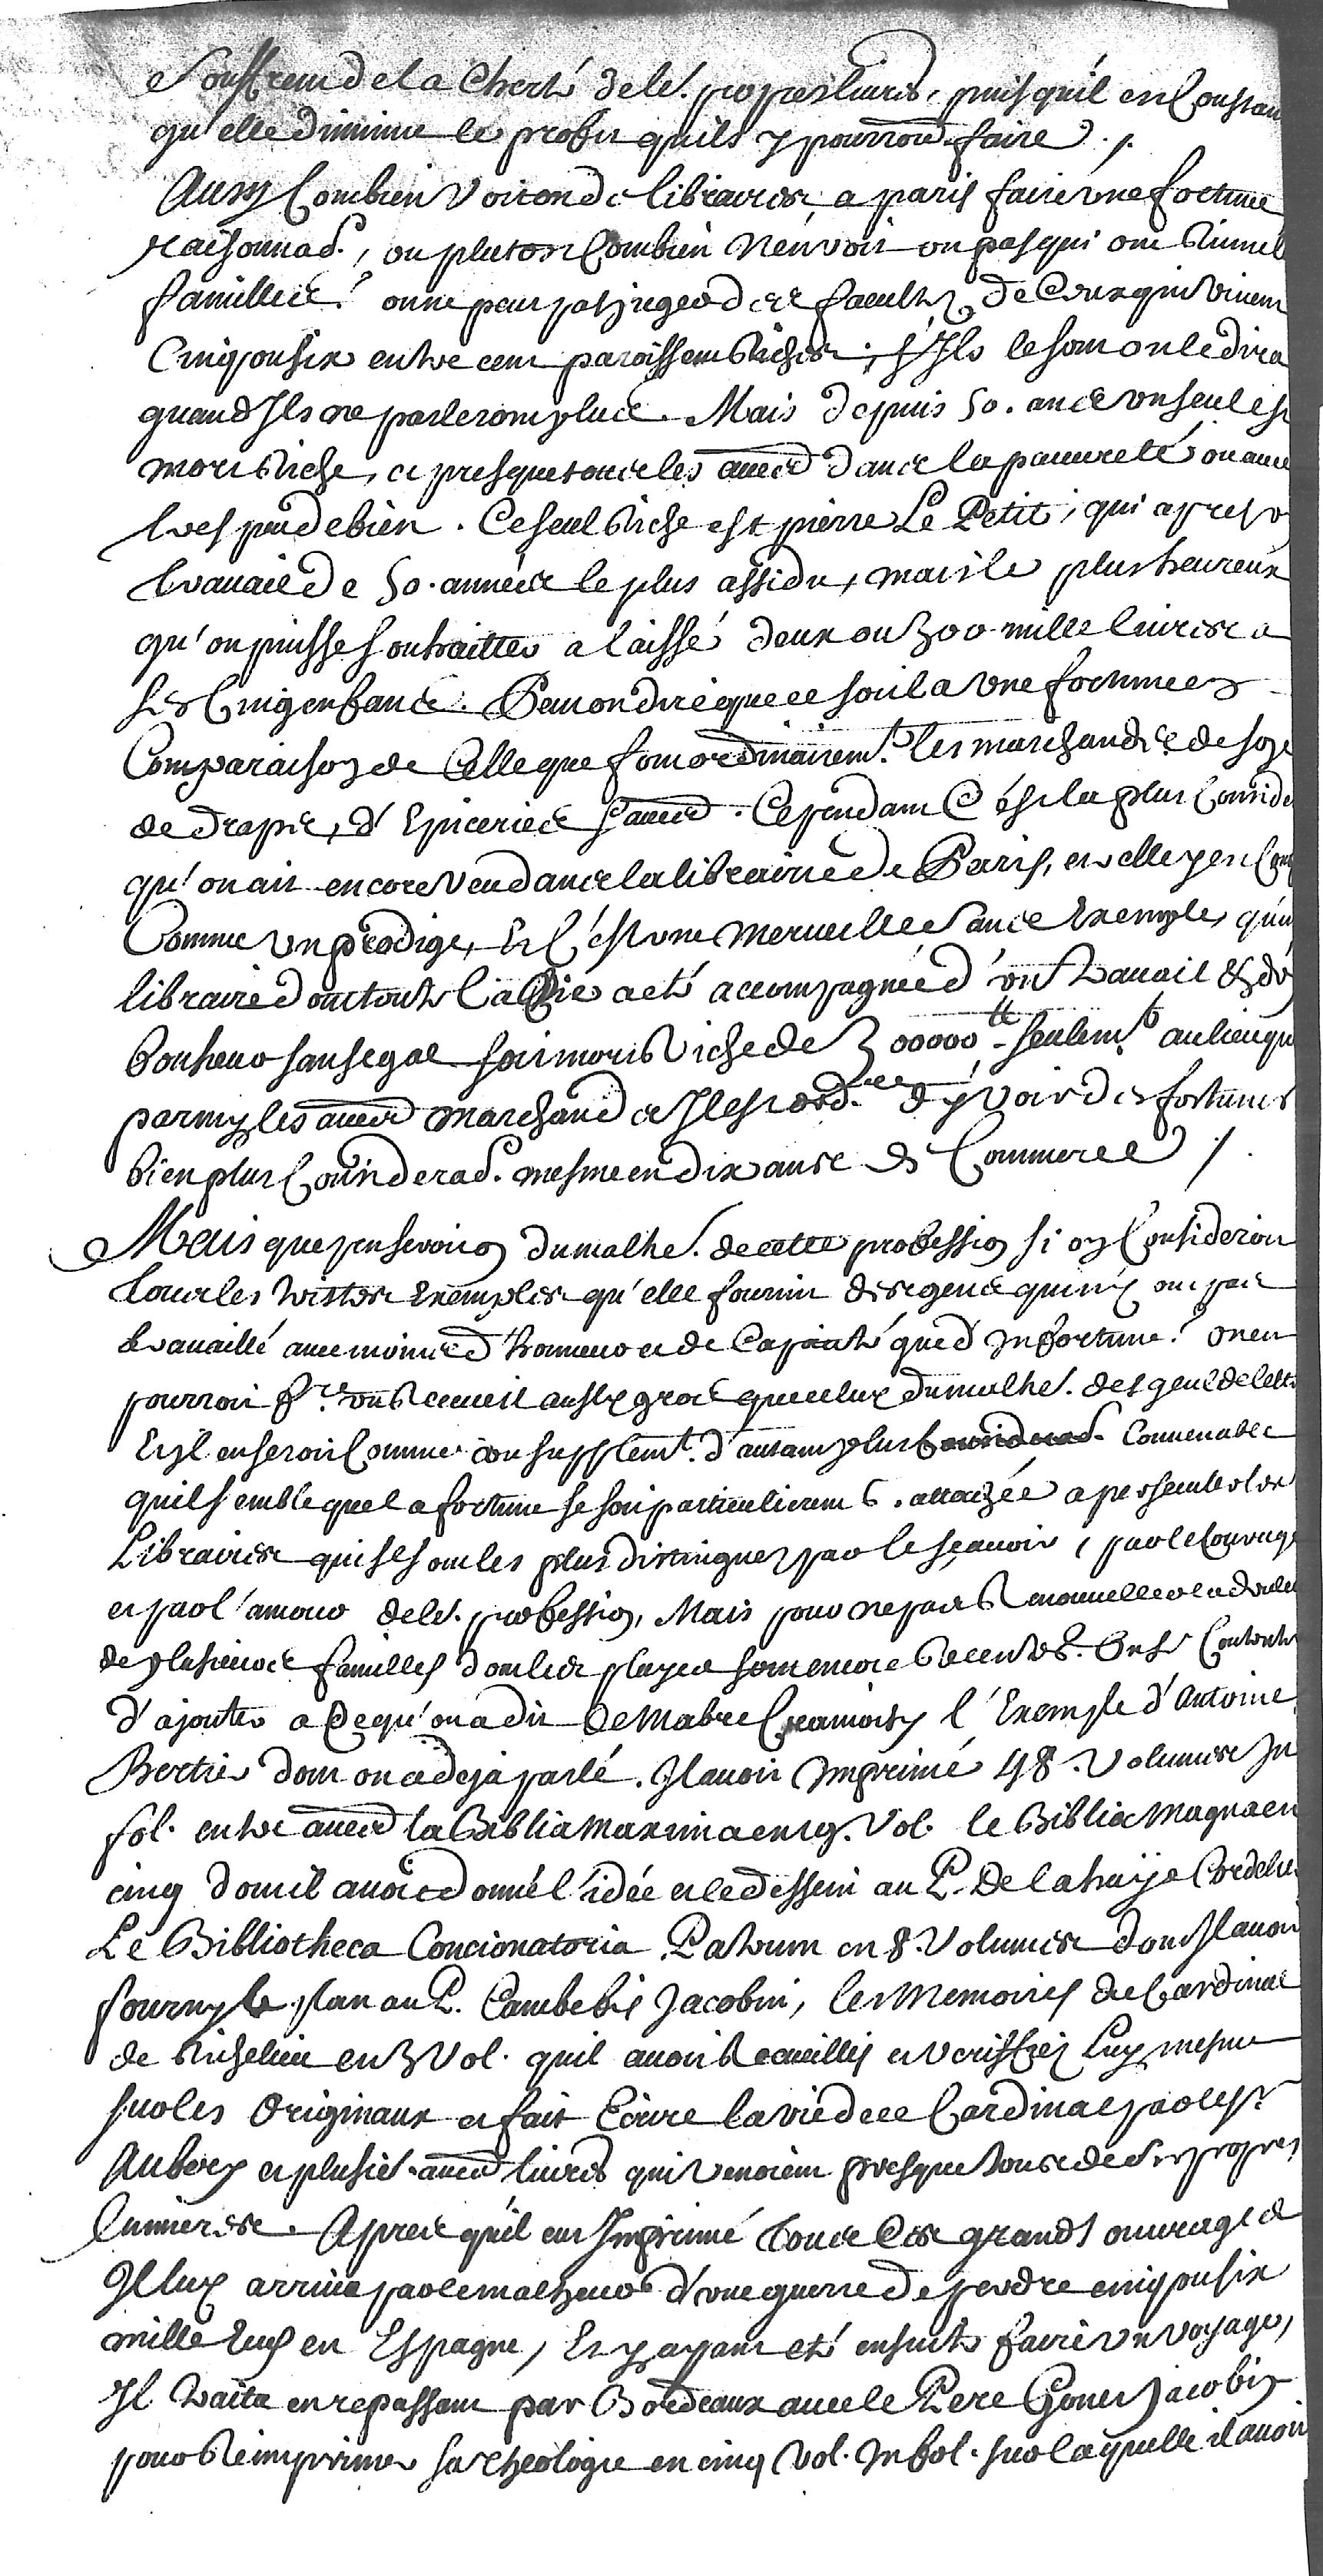 Souffrent de la Cherté de le^r. propres livres, puisqu'il est Constan
qu'elle diminue le profit quils y pourront faire ./.
Aussy Combien Voit on de libraires a paris faire une fortune
raisonnab^e., ou plutost Combien n'en voit on pas qui ont Ruiné l
familles? on ne peut pas juger des facultez de Ceux qui vivent
Cinq ou six entre cent paroissent Riches; s'Ils le sont on le dira
quand Ils ne parleront plus. Mais depuis 50. ans un seul est
mort Riche, et presque tous les autres dans la pauvreté ou avec
tres peu de bien. Ce seul Riche est pierre Le Petit, qui apres un
travail de 50. années le plus assidu, mais le plus heureux
qu'on puisse souhaitter a laissé deux ou 300 mille livres a
ses Cinq enfans. Peut on dire que ce soit la une fortune en
Comparaison de Celle que font ordinairem^t. les marchands de soye
de draps, d'Epiceries & autres. Cependant C'est la plus Consider
qu'on ait encore veu dans la librairie de Paris, et elle y est Com
Comme un prodige, Et C'est une merveille sans Exemple, qu'un
libraire dont toute la Vie a eté accompagnée d'un travail & d'un
bonheur sans egal soit mort Riche de 300000^tt seulem^t. au lieu que
parmy les autres marchands Il est ord^re. d'y voir des fortunes
bien plus Considerab^e. mesme en dix ans de Commerce /.
Mais que penseroit on du malhe^r. de cette profession si on Consideroit
tous les tristes Exemples qu'elle fournit des gens qui n'y ont pas
travaillé avec moins d'honneur et de Capacité que d'Infortune? on en
pourroit f^re. un Recueil aussy gros que celuy du malhe^r. des gens de lettr
Et Il en seroit Comme un supplem^t. d'autant plus Considerab^e. Convenable
quil semble que la fortune se soit particulierem^t. attachée a persecuter les
Libraires qui se sont les plus distinguez par le sçavoir, par le Courage
et par l'amour de le^r. profession, Mais pour ne pas Renouveller la douleur
de plusieurs familles dont les playes sont encore Recentes. On se Contente
d'ajouter a Ce qu'on a dit de Mabre Cramoisy l'Exemple d'Antoine
Bertier dont on a deja parlé. Il avoit Imprimé 48. Volumes In
fol. entre autres la Biblia Maxima en 19. Vol. le Biblia Magna en
cinq dont il avoit donné l'idée et le dessein au P. De la haye Cordelie
Le Bibliotheca Concionatoria Patrum en 8. Volumes dont Il avoit
fourny le plan au P. Combefis Jacobin, les Memoires du Cardinal
de Richelieu en 3 Vol. quil avoit Recueillis et veriffiez Luy mesme
sur les Originaux et fait Ecrire la vie de ce Cardinal par le s^r
Aubery et plusie^rs. autres livres qui venoient presque tous de ses propres
lumieres. Apres qu'il eut Imprimé tous Ces grands ouvrages
Il luy arriva par le malheur d'une guerre de perdre cinq ou six
mille Ecus en Espagne, Et y ayant eté ensuite faire un voyage,
Il traita en repassant par Bordeaux avec le Pere Gonet Jacobin
pour Reimprimer sa theologie en cinq Vol. In fol. sur laquelle il avoit